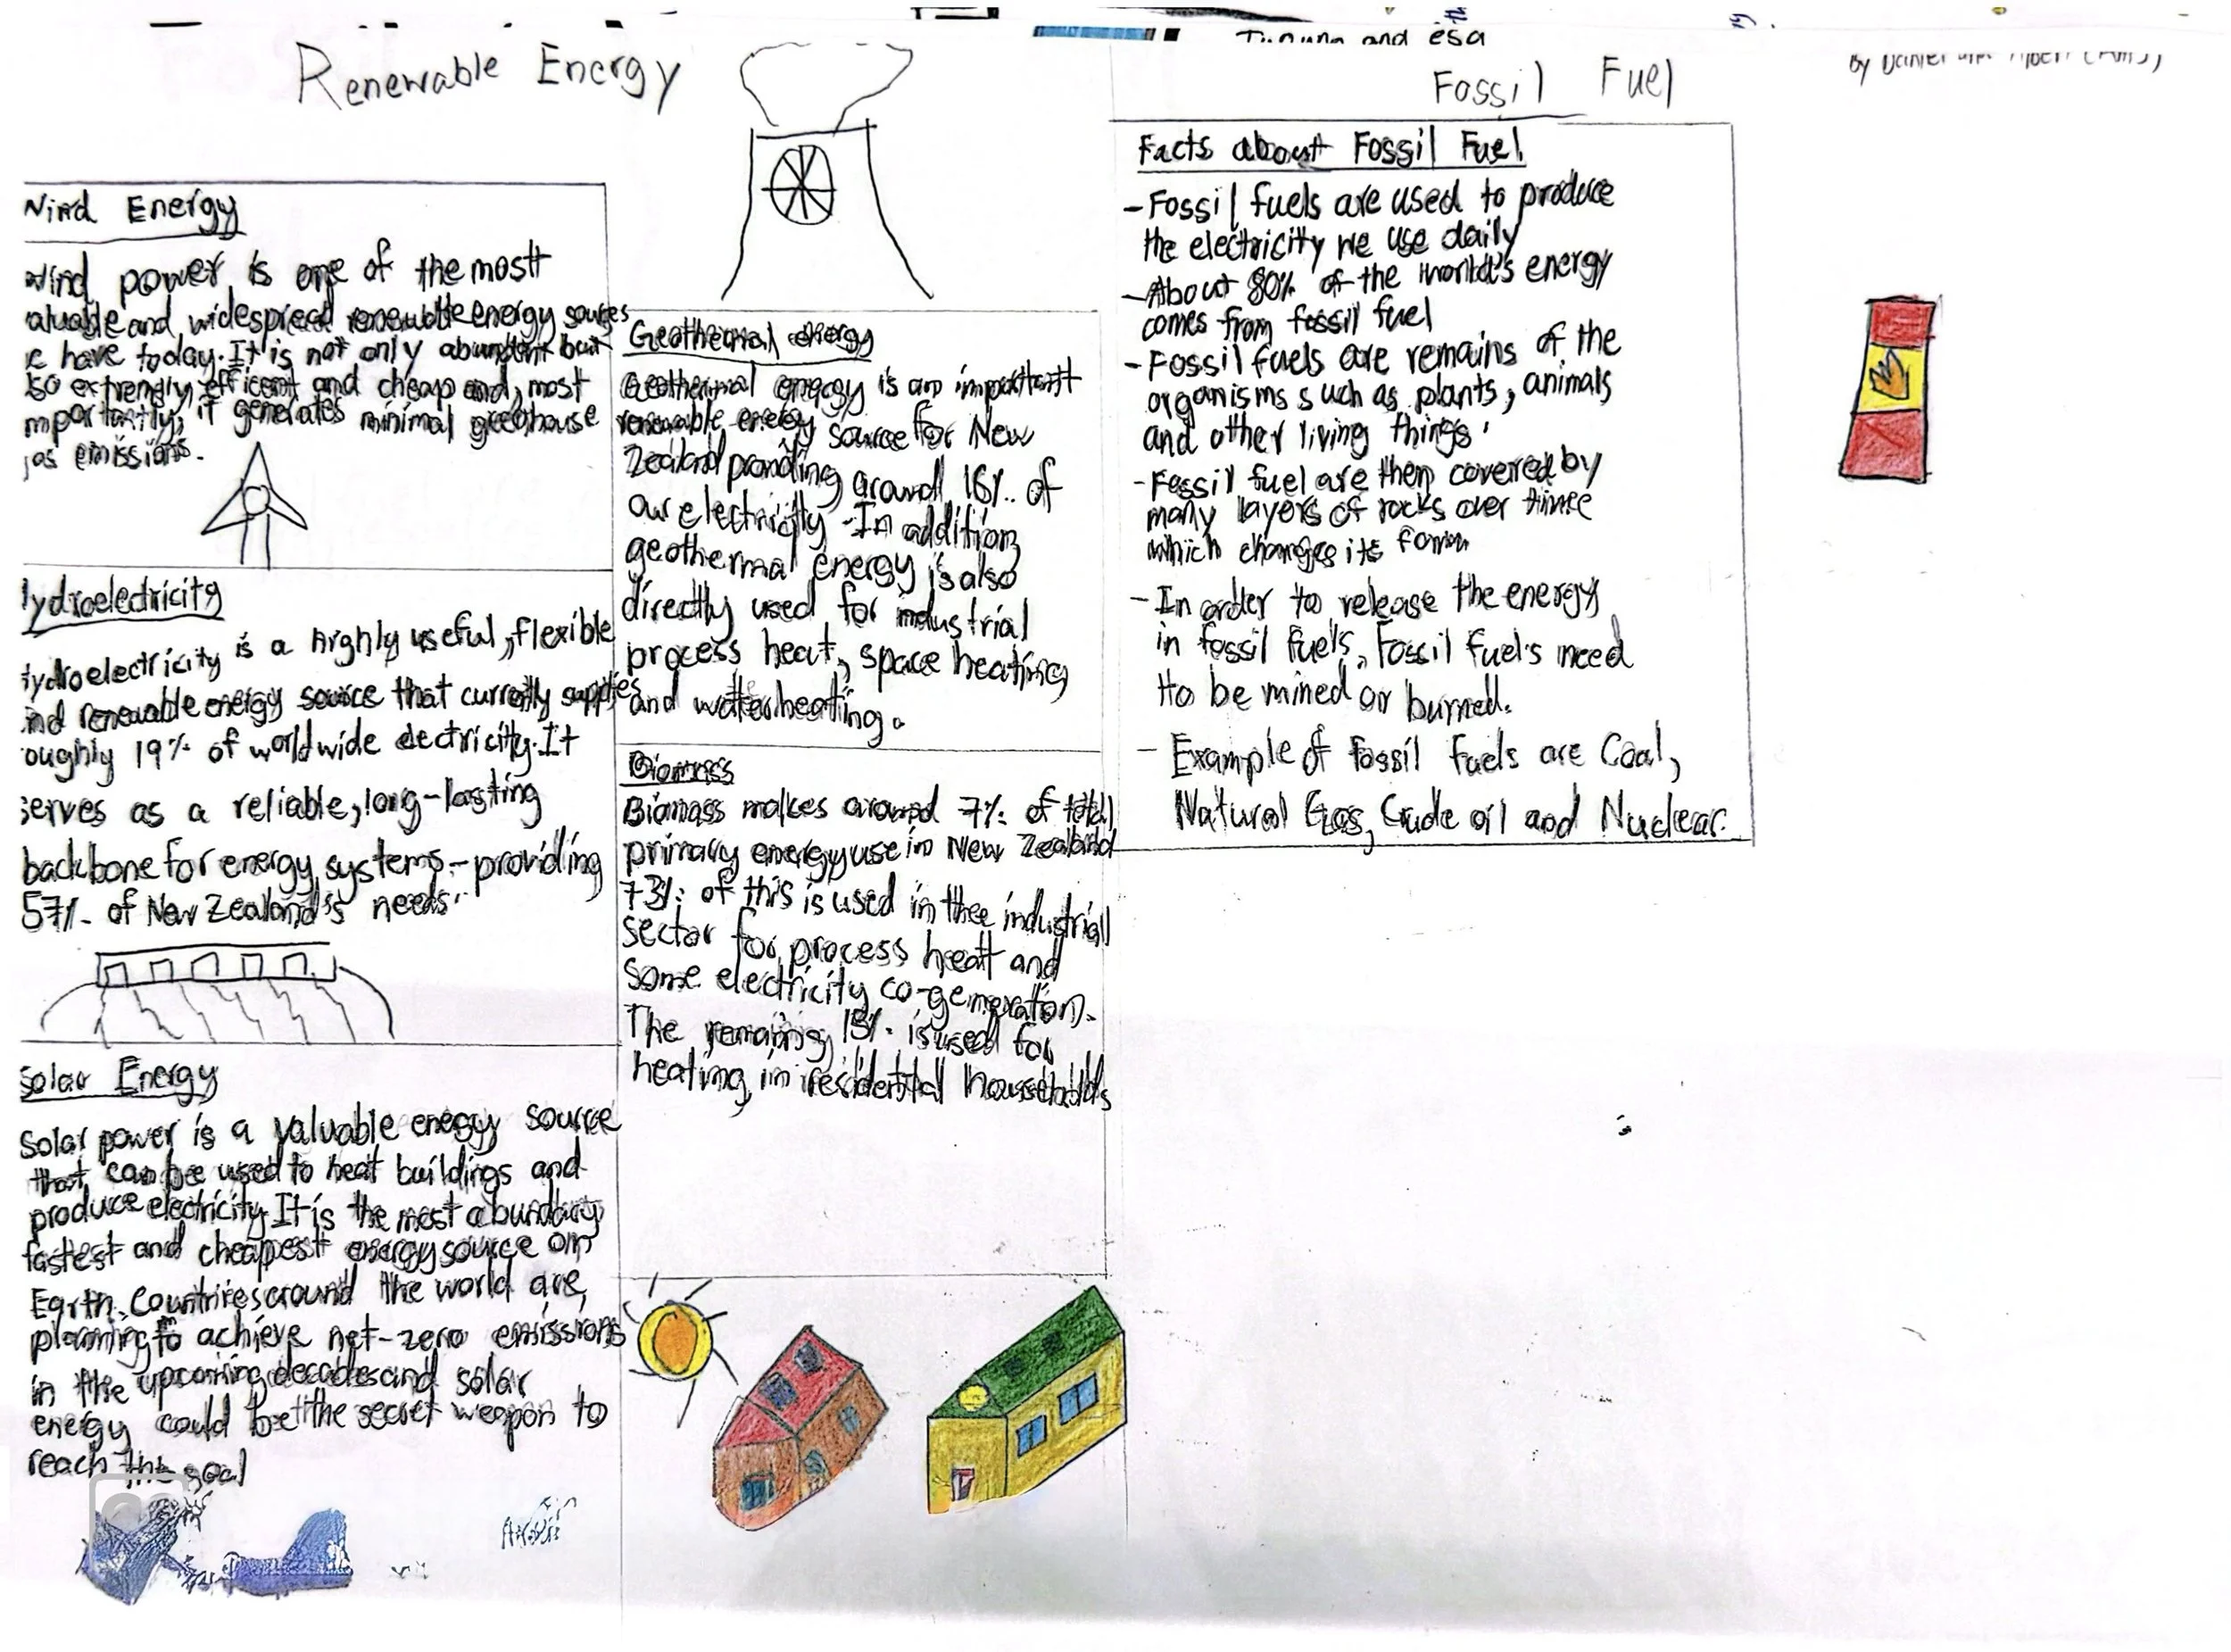 Renewable Energy
Wind Energy
Wind power is one of the most
aluable and widespread renewable energy sources
e have today. It is not only abundant but
so extremly efficent and cheap and, most
mportantly, it generates minimal greehouse
gas emissions.
ydroelectricity
ydroelectricity is a highly useful, flexible
and renewable energy source that currently supplies
oughly 19% of worldwide electricity. It
serves as a reliable, long-lasting
backbone for energy systems - providing
57% of New Zealand's needs.
Solar Energy
Solar power is a valuable energy source
that can be used to heat buildings and
produce electricity. It is the most abundany
fastest and cheapest energy source on
Earth. Countries around the world are
planning to achieve net-zero emissions
in the upcoming decades and solar
energy could be the secret weapon to
reach the goal
Geothermal energy
Geothermal energy is an important
renewable energy source for New
Zealand providing around 16% of
our electricity. In addition
geothermal energy is also
directly used for industrial
process heat, space heating
and water heating.
Biomass
Biomass makes around 7% of total
primary energy use in New Zealand
73% of this is used in the industrial
sector for process heat and
some electricity co-generation.
The remaining 15% is used for
heating in residential households
and esa
Fossil Fuel
By
Facts about Fossil Fuel
- Fossil fuels are used to produce
the electricity we use daily
- About 80% of the world's energy
comes from fossil fuel
- Fossil fuels are remains of the
organisms such as plants, animals
and other living things.
- Fossil fuel are then covered by
many layers of rocks over time
which changes its form
- In order to release the energy
in fossil fuels, Fossil fuels need
to be mined or burned.
- Example of Fossil fuels are Coal,
Natural Gas, Crude oil and Nuclear.